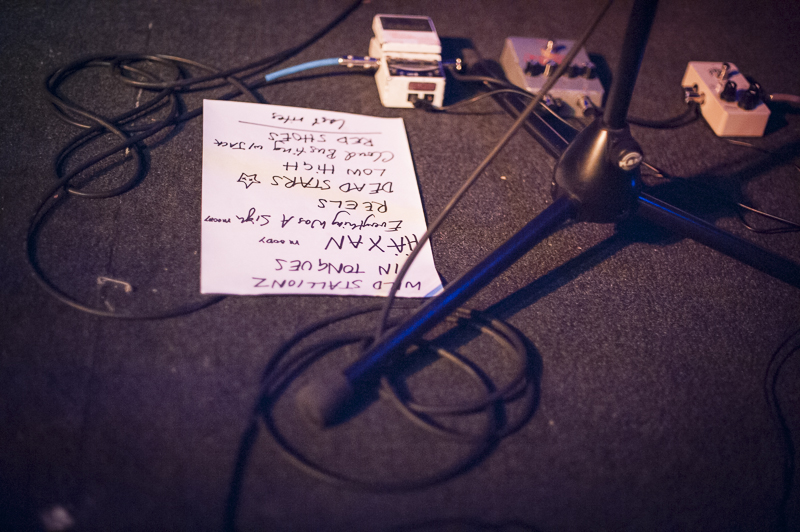 WILD STALLIONZ
IN TONGUES
HÄXAN moody
Everything Was A Sign moody
REELS
DEAD STARS ☆
LOW HIGH
Cloud Busting w/ JACK
RED SHOES
Last rites